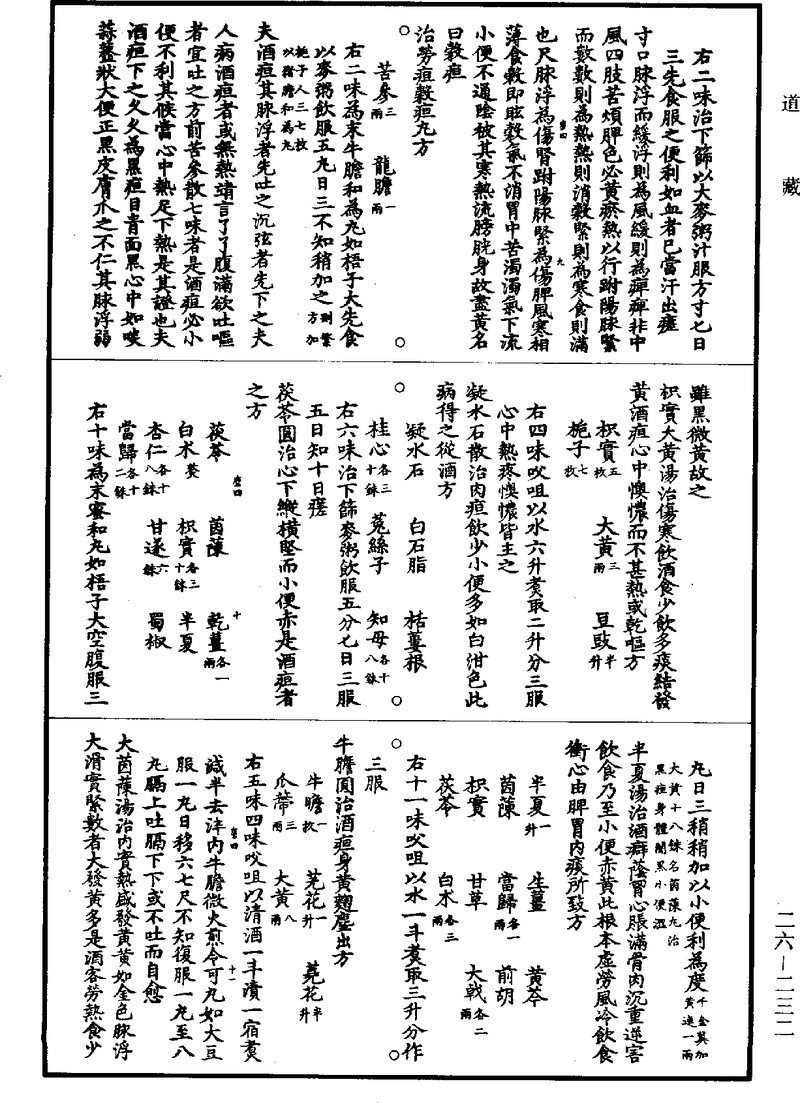 道藏
右二味治下篩以大麥粥汁服方寸匕日
三先食服之便利如血者已當汗出瘥
寸口脉浮而緩浮則為風緩則為痺痺非中
風四肢苦煩脾色必黃瘀熱以行趺陽脉緊
而數數則為熱熱則消穀緊則為寒食則滿
也尺脉浮為傷腎趺陽脉緊為傷脾風寒相
薄食穀即眩穀氣不消胃中苦濁濁氣下流
小便不通陰被其寒熱流膀胱身故盡黃名
曰穀疸
治勞疸穀疸丸方
苦參三兩 龍膽一兩
右二味為末牛膽和為丸如梧子大先食
以麥粥飲服五丸日三不知稍加之刪繁方加
梔子人三七枚
以猪膽和為丸
夫酒疸其脉浮者先吐之沉弦者先下之夫
人病酒疸者或無熱靖言了了腹滿欲吐嘔
者宜吐之方前苦參散七味者是酒疸必小
便不利其候當心中熱足下熱是其證也夫
酒疸下之久久為黑疸目青面黑心中如啖
蒜虀狀大便正黑皮膚爪之不仁其脉浮弱
雖黑微黃故之
枳實大黃湯治傷寒飲酒食少飲多痰結發
黃酒疸心中懊憹而不甚熱或乾嘔方
枳實五枚 大黃三兩 豆豉半升
梔子七枚
右四味㕮咀以水六升煑取二升分三服
心中熱疼懊憹皆主之
凝水石散治肉疸飲少小便多如白泔色此
病得之從酒方
凝水石 白石脂 栝蔞根
桂心各三十銖 菟絲子 知母各十八銖
右六味治下篩麥粥飲服五分匕日三服
五日知十日瘥
茯苓圓治心下縱橫堅而小便赤是酒疸者
之方
茯苓 茵蔯 乾薑各一兩
白术熬 枳實各三十銖 半夏
杏仁各十八銖 甘遂六銖 蜀椒
當歸各十二銖
右十味為末蜜和丸如梧子大空腹服三
丸日三稍稍加以小便利為度千金翼加黃連一兩
大黃十八銖名茵蔯丸治
黑疸身體闇黑小便澀
半夏湯治酒癖蔭胃心脹滿骨肉沉重逆害
飲食乃至小便赤黃此根本虛勞風冷飲食
衝心由脾胃內痰所致方
半夏一升 生薑 黃芩
茵蔯 當歸各一兩 前胡
枳實 甘草 大戟各二兩
茯苓 白术各三兩
右十一味㕮咀以水一斗煑取三升分作
三服
牛膽圓治酒疸身黃麹塵出方
牛膽一枚 芫花一升 蕘花半升
瓜蔕三兩 大黃八兩
右五味四味㕮咀以清酒一斗漬一宿煑
減半去滓內牛膽微火煎令可丸如大豆
服一丸日移六七尺不知復服一丸至八
丸膈上吐膈下下或不吐而自愈
大茵蔯湯治內實熱盛發黃黃如金色脉浮
大滑實緊數者大發黃多是酒客勞熱食少
二六—二三二